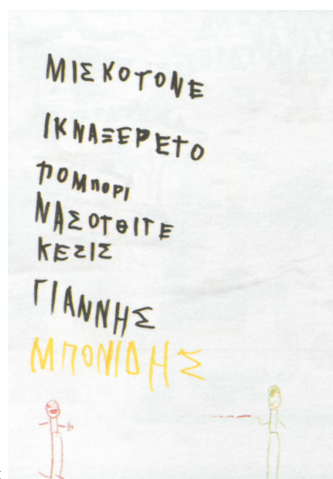 ΜΙΣΚΟΤΟΝΕ
ΙΚΝΑΞΕΡΕΤΟ
ΠΟΜΠΟΡΙ
ΝΑΣΟΤΘΙΤΕ
ΚΕΣΙΣ
ΓΙΑΝΝΗΣ
ΜΠΟΝΙΔΗΣ